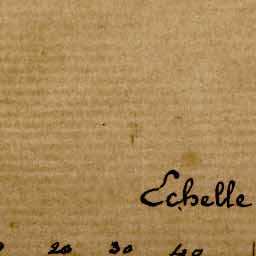 Echelle
20 30 40